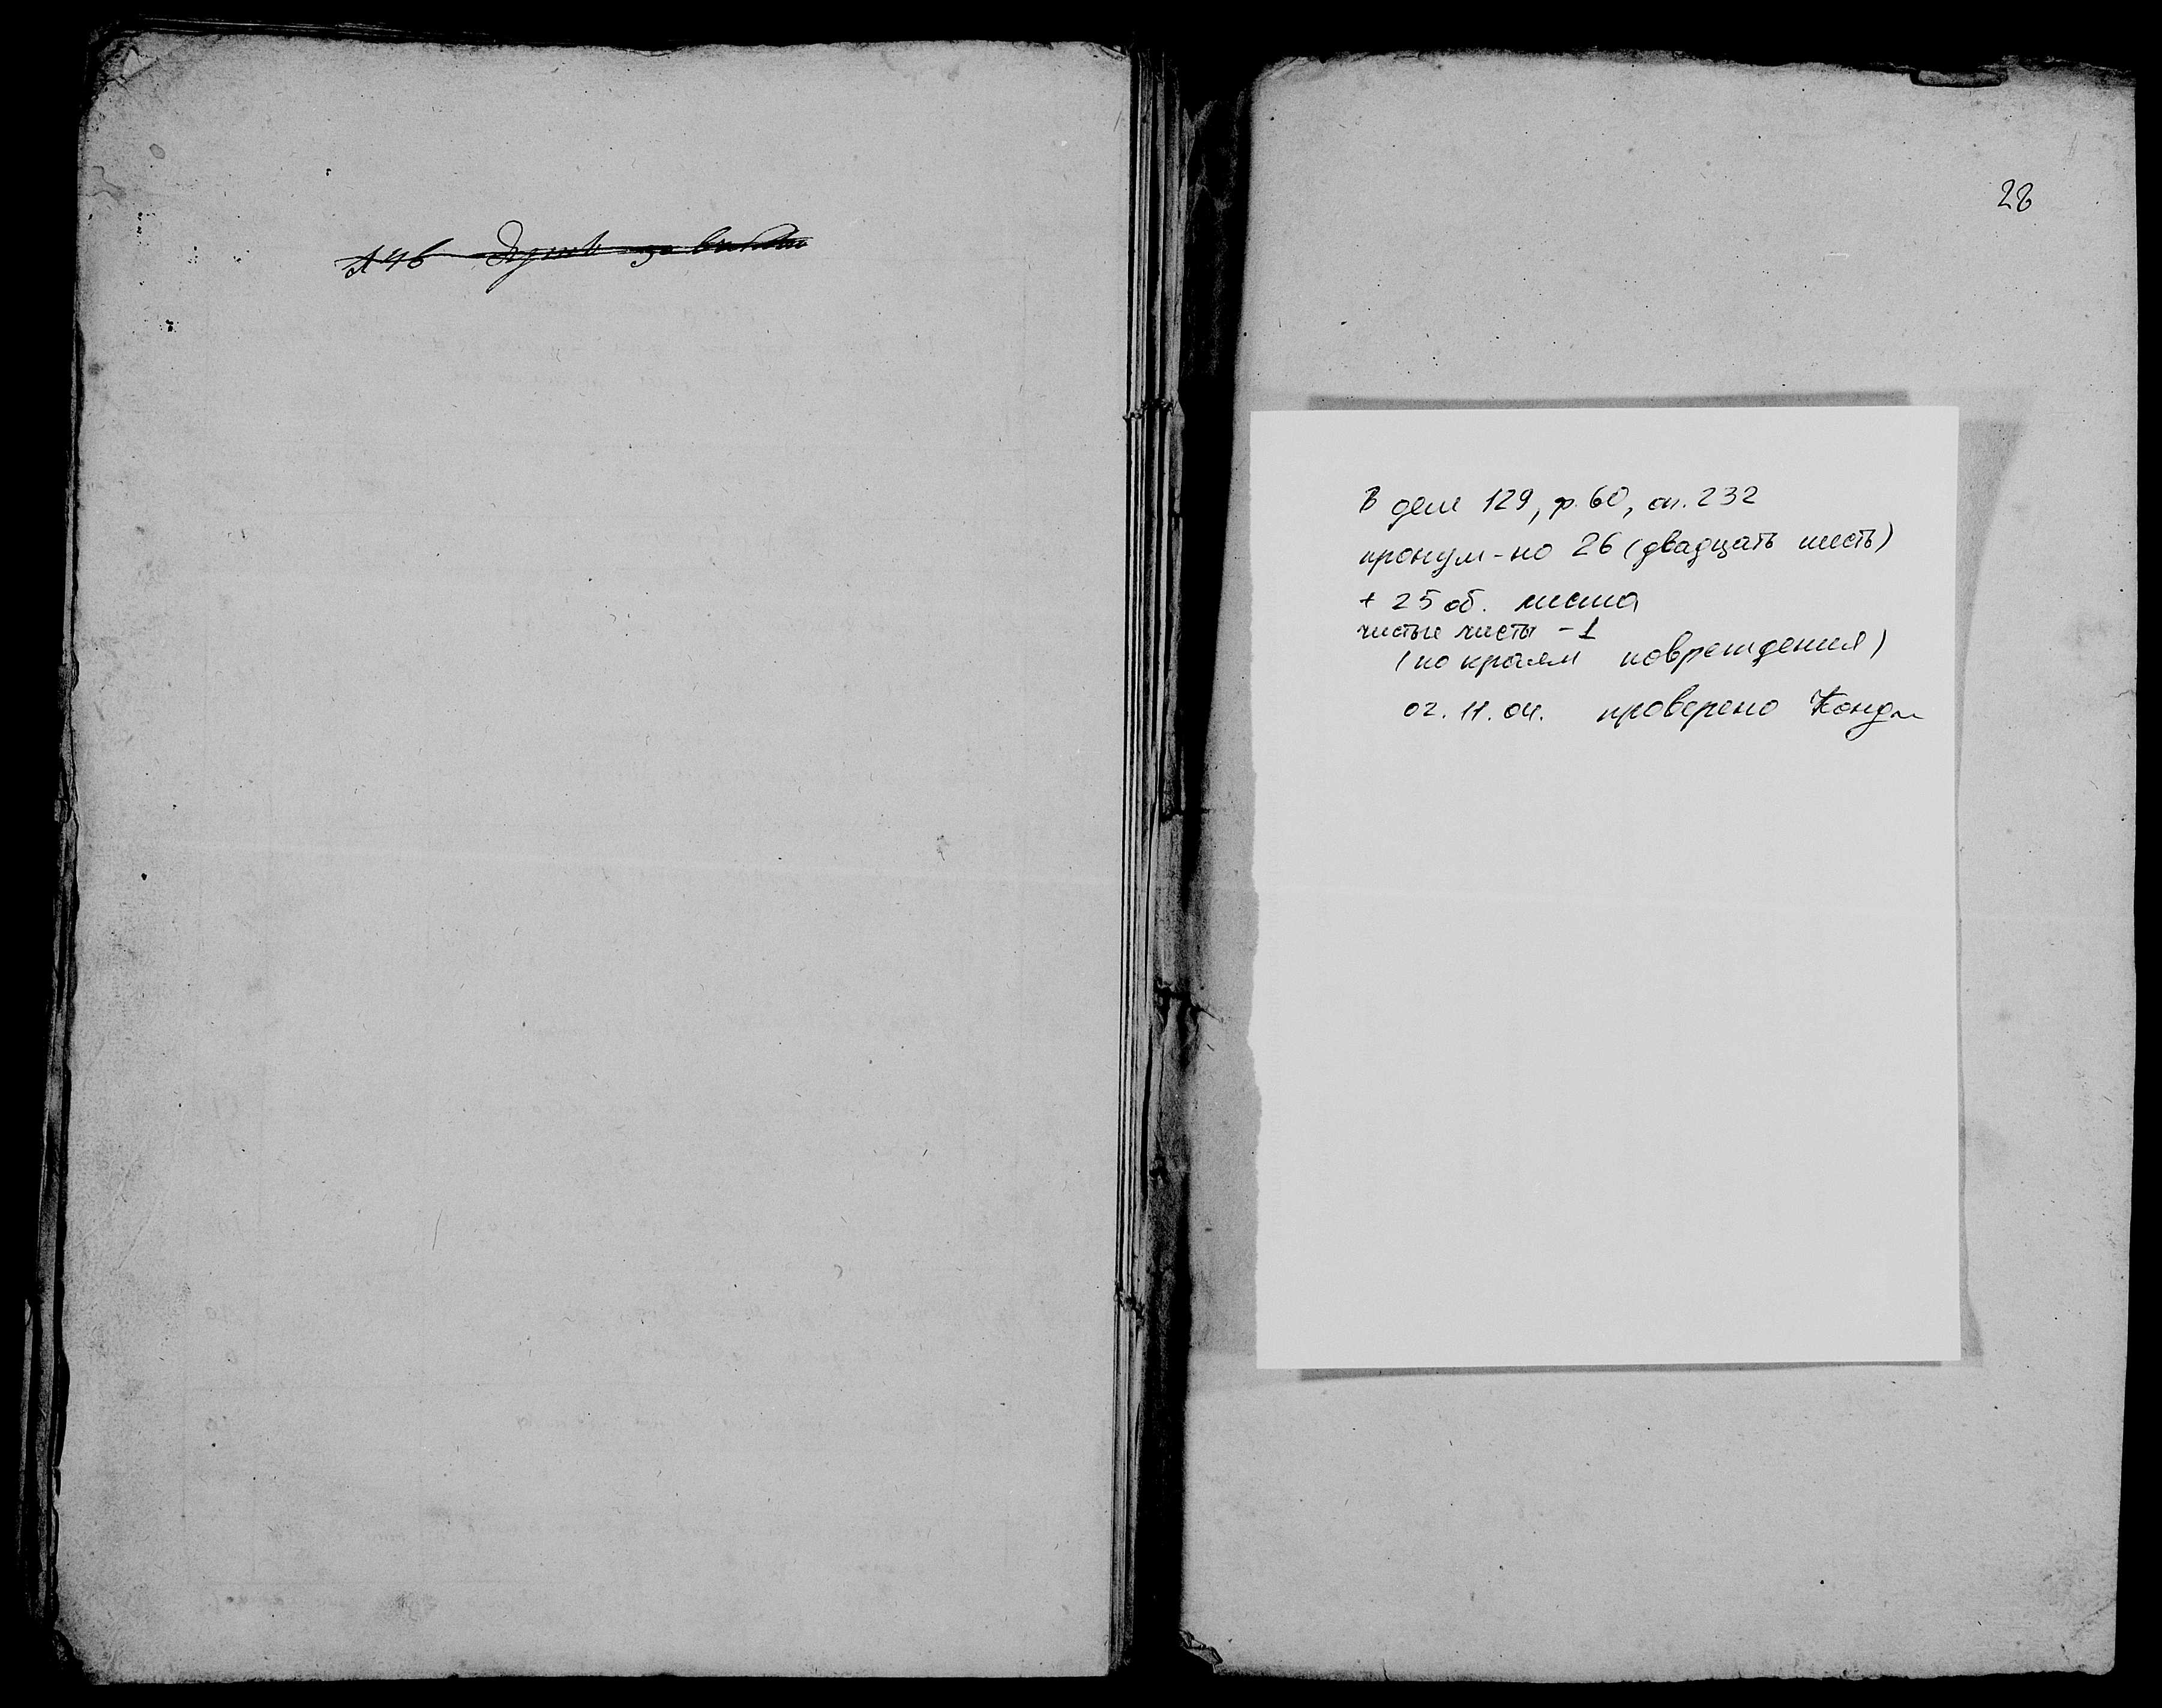 28
В деле 129, ф. 60, оп. 232
пронум-но 26 (двадцать шесть)
+ 25 об. листа
чистые листы - 1
(по краям повреждения)
02. 11. 04. проверено